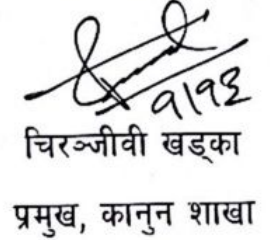 १।१६
चिरञ्जीवी खड्का
प्रमुख, कानुन शाखा